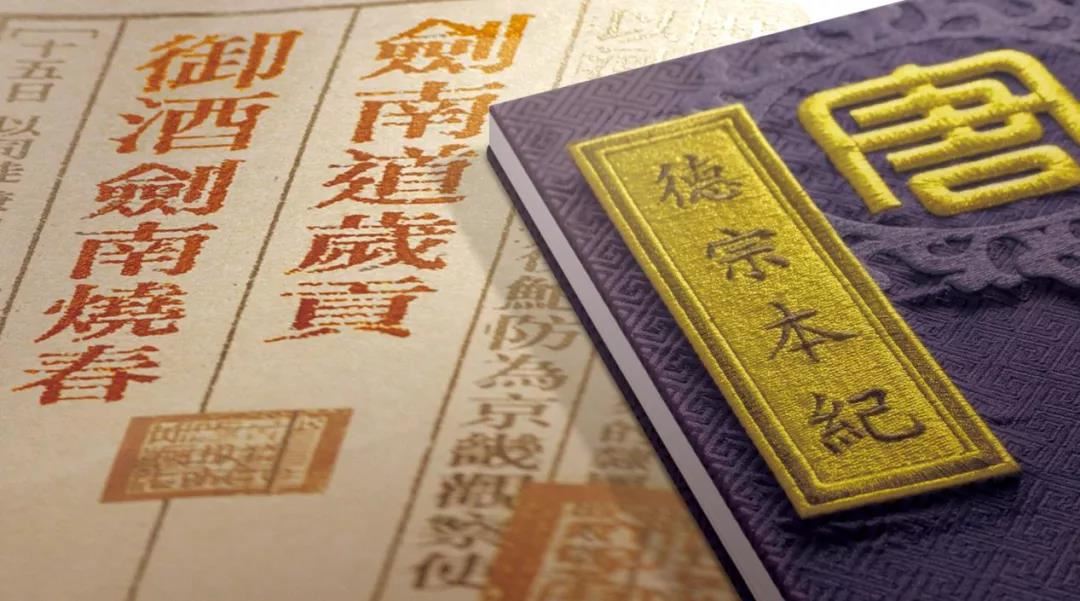 唐
德宗本紀
鮑防為京畿觀察使
劍南道歲貢
御酒劍南燒春
十五日